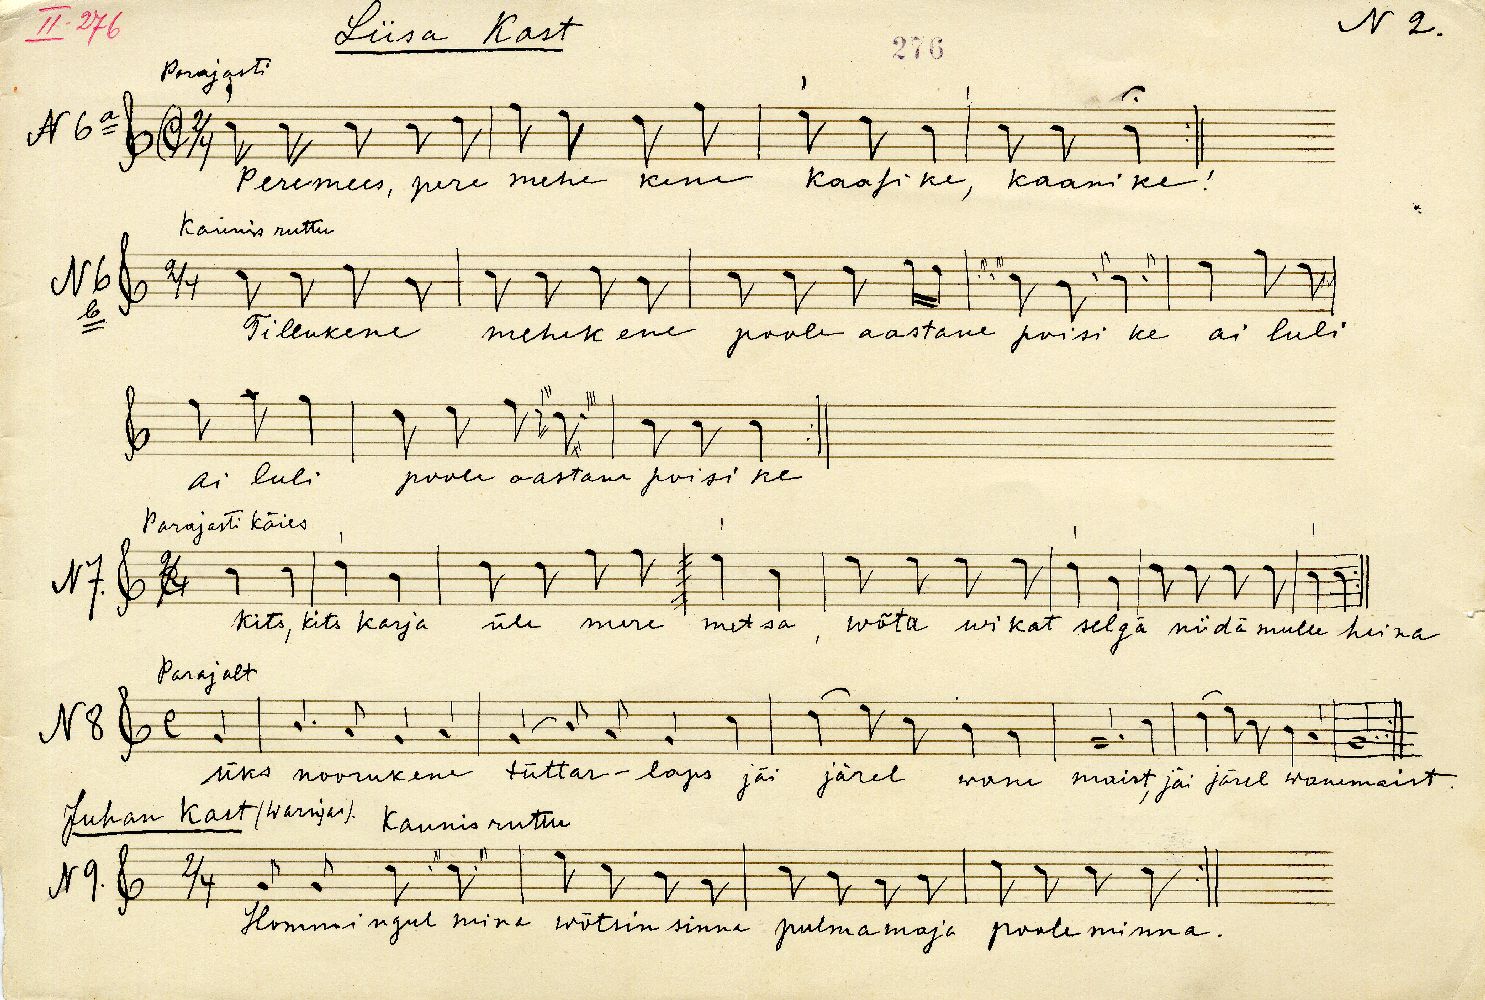 II-276
Liisa Kast
276
N 2.
Parajasti
N 6a 2/4
Peremees, pere mehe kene kaasike, kaasike!
Kaunis ruttu
N 6 b 2/4
Tillukene mehekene poole aastane poisi ke ai luli
ai luli poole aastane poisi ke
Parajasti käies
N 7. 2/4
Kits, kits karja üle mere metsa, wõta wikat selgä niidä mulle heina
Parajalt
N 8
üks noorukene tüttar-laps jäi järel wane maist, jäi järel wanemaist.
Juhan Kast
Kaunis ruttu
N 9. 2/4
Hommingul mina wõtsin sinna pulma maja poole minna.